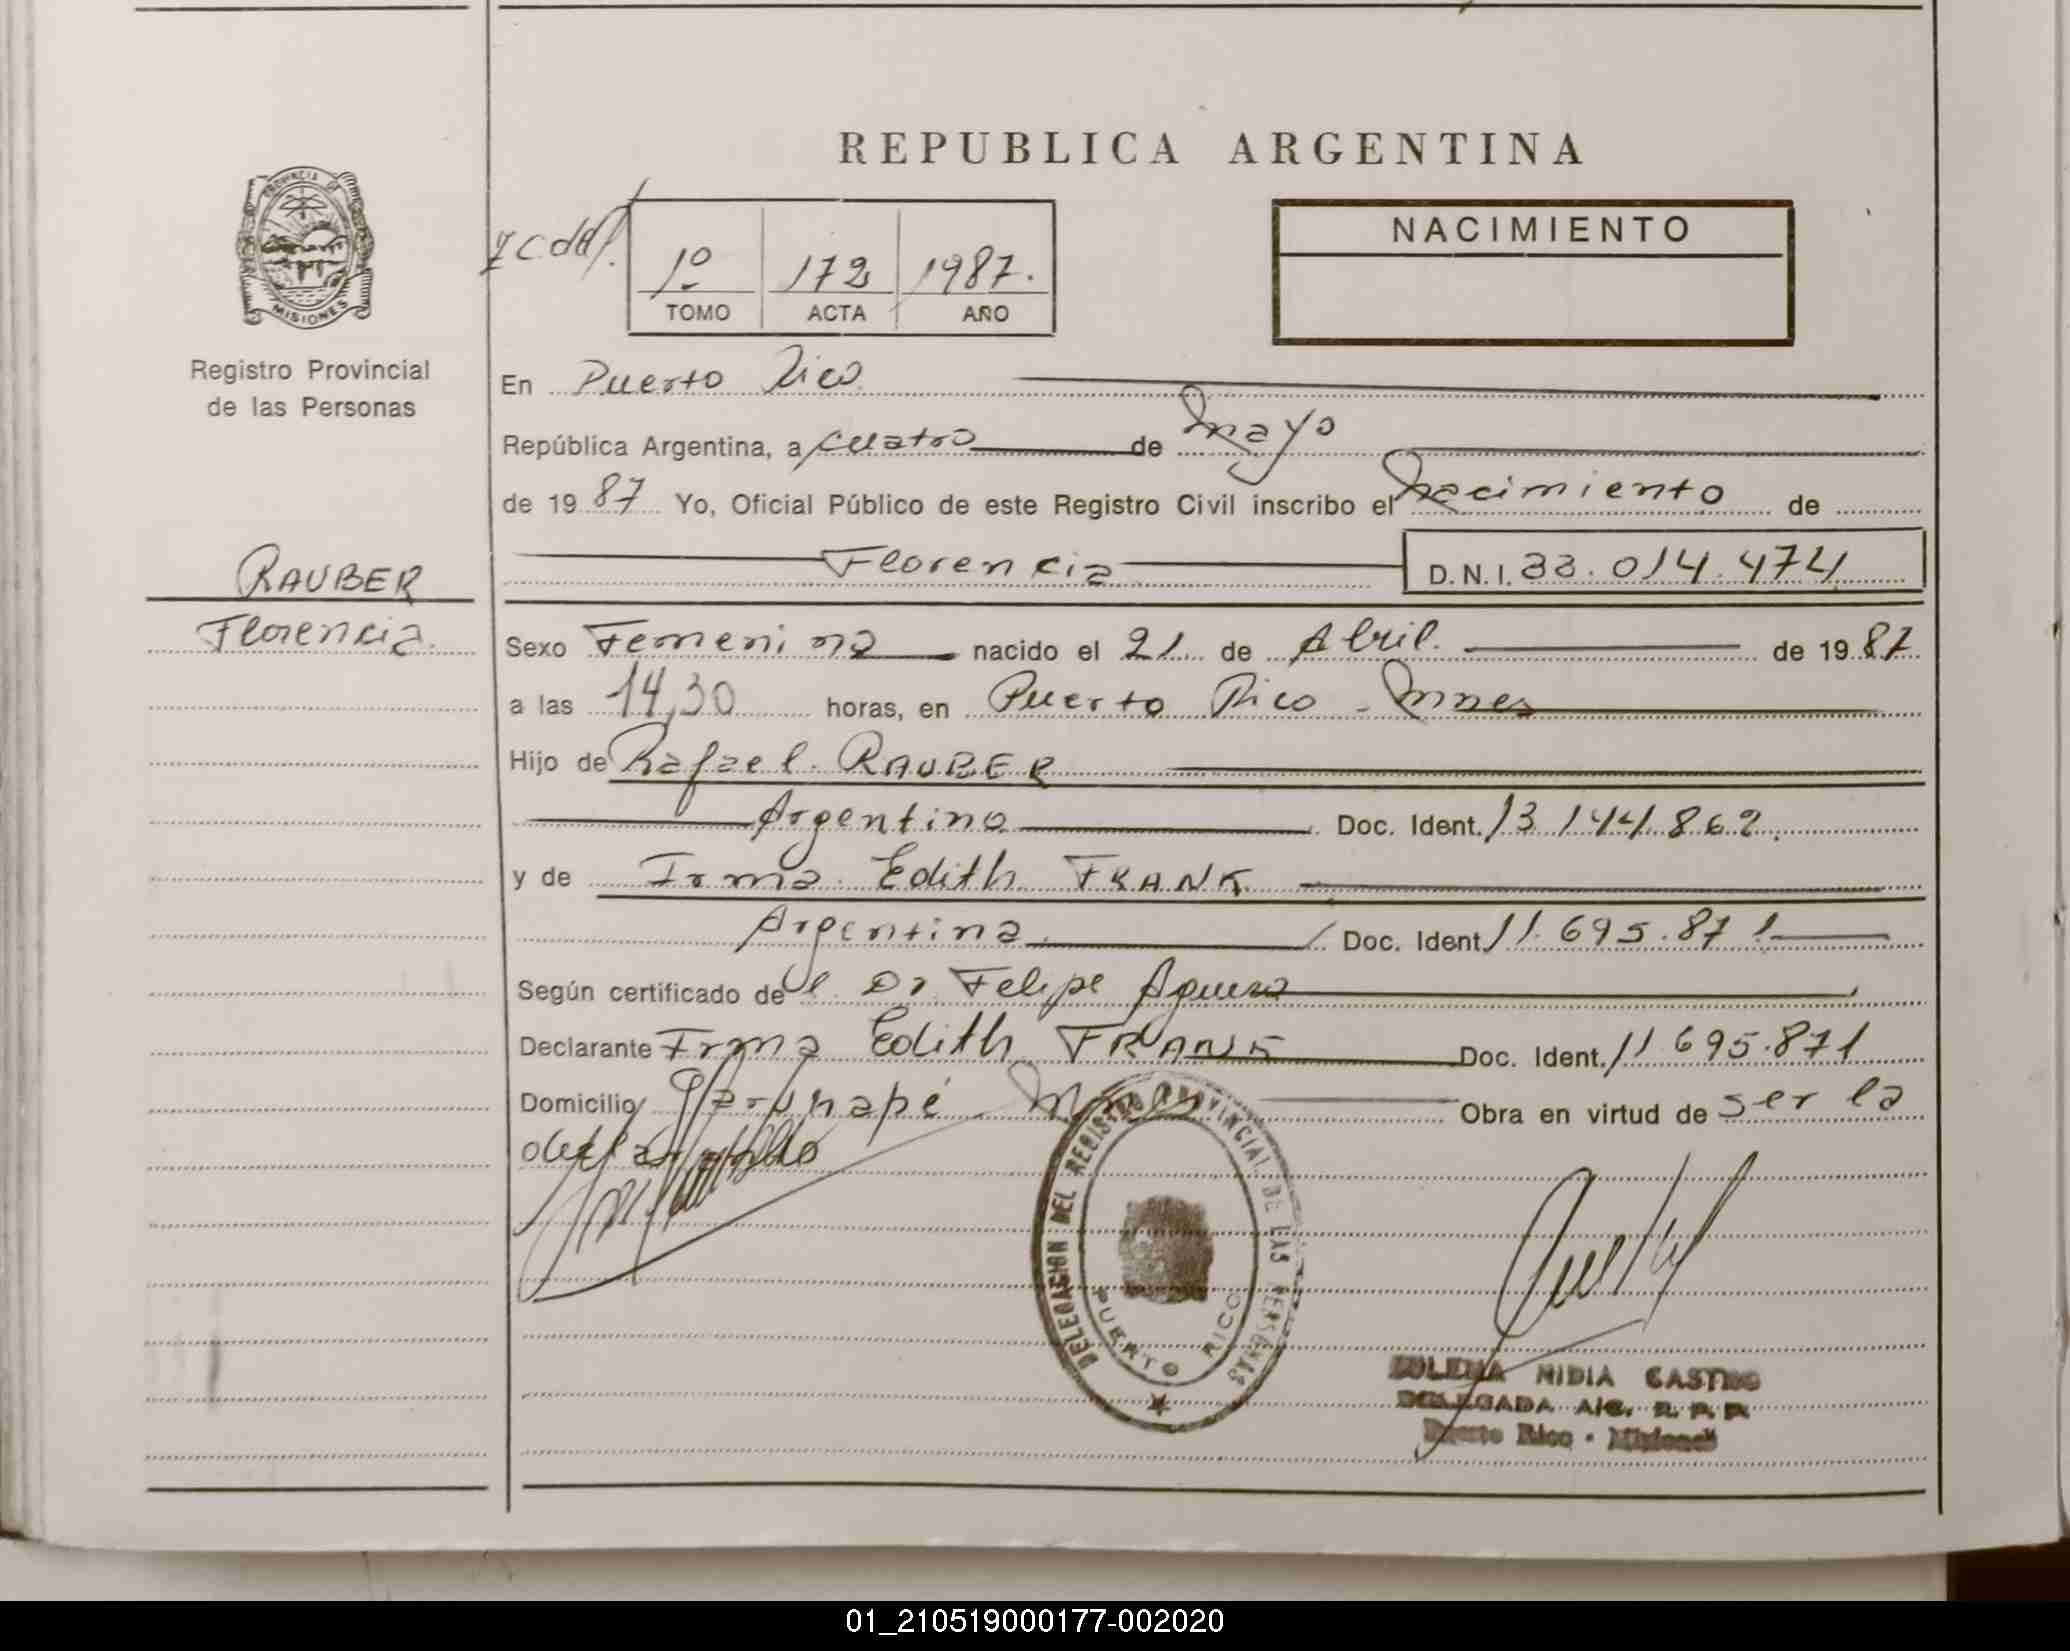 REPUBLICA ARGENTINA
PROVINCIA DE
MISIONES
Registro Provincial
de las Personas
1º 172 1987.
TOMO ACTA AÑO
NACIMIENTO
En Puerto Rico
República Argentina, a cuatro de Mayo
de 1987 Yo, Oficial Público de este Registro Civil inscribo el Nacimiento de
Florencia D.N.I. 33.014.474
RAUBER
Florencia.
Sexo Femenina nacido el 21 de Abril. de 1987
a las 14,30 horas, en Puerto Rico - Mnes
Hijo de Rafael RAUBER
Argentino Doc. Ident. 13 144 862.
y de Irma Edith FRANK
Argentina Doc. Ident 11.695.871
Según certificado de el Dr Felipe Aguero
Declarante Irma Edith FRANK Doc. Ident. 11 695.871
Domicilio Garuhapé Mnes Obra en virtud de ser la
DELEGACION DEL REGISTRO PROVINCIAL DE LAS PERSONAS
PUERTO RICO
NIDIA CASTRO
DELEGADA A/C. R. P. P.
Puerto Rico - Misiones
01_210519000177-002020